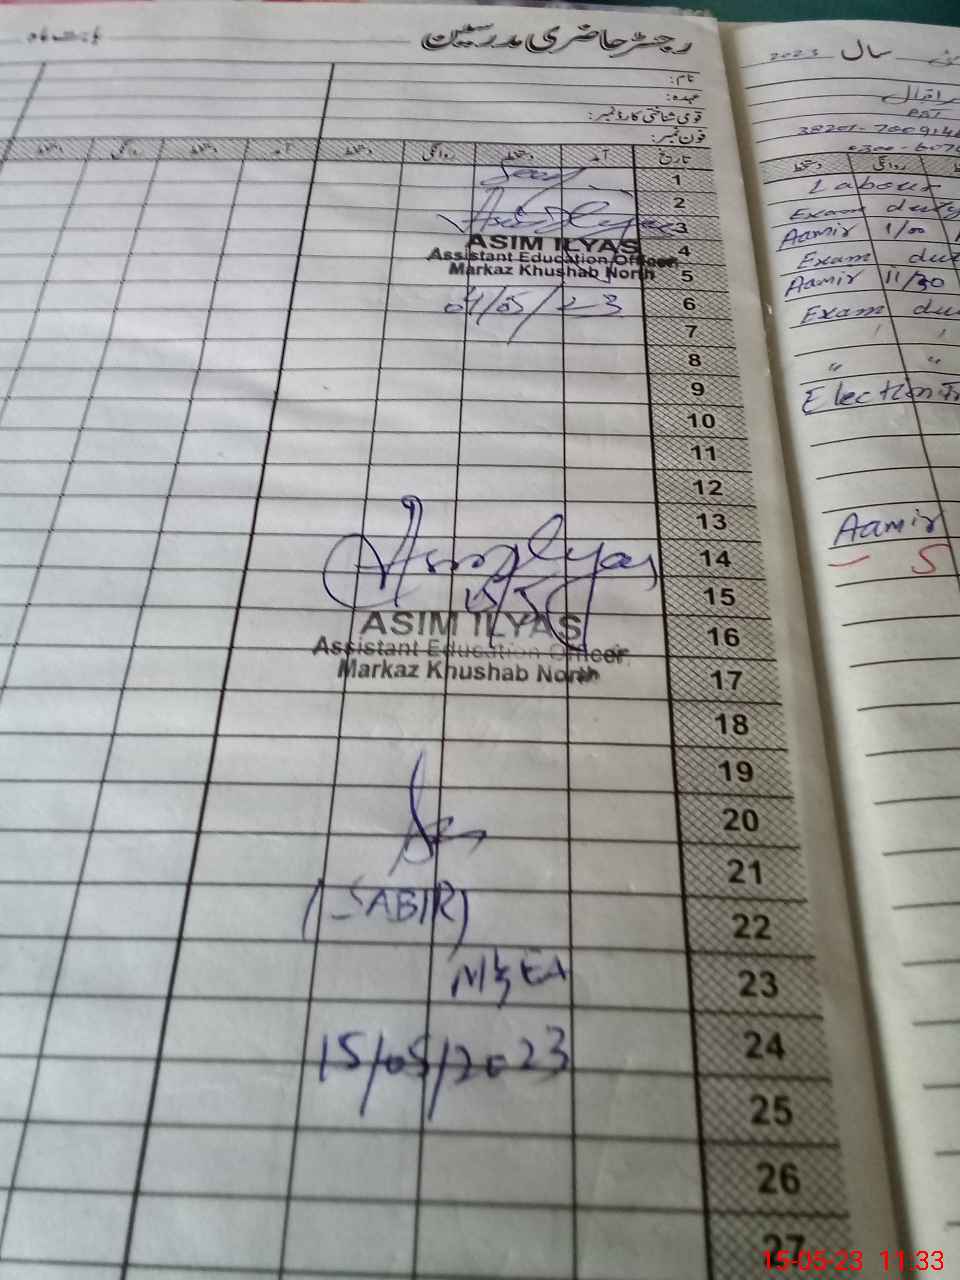 رجسٹر حاضری مدرسین
بابت ماہ
نام:
عہدہ:
قومی شناختی کارڈ نمبر:
فون نمبر:
تاریخ آمد دستخط روانگی دستخط آمد دستخط روانگی دستخط
1
2
3
ASIM ILYAS
4
Assistant Education Officer
Markaz Khushab North
5
04/05/23
6
7
8
9
10
11
12
13
Asim Ilyas
14
15/5
15
ASIM ILYAS
16
Assistant Education Officer
Markaz Khushab North
17
18
19
20
21
(SABIR)
22
23
15/05/2023
24
25
26
27
سال 2023
اقبال
PST
38201-7009146
0300-6070
دستخط روانگی
Labour
Exam duty
Aamir 1/00
Exam
Aamir 11/30
Exam
" "
Election
Aamir
- S
15-05-23 11:33